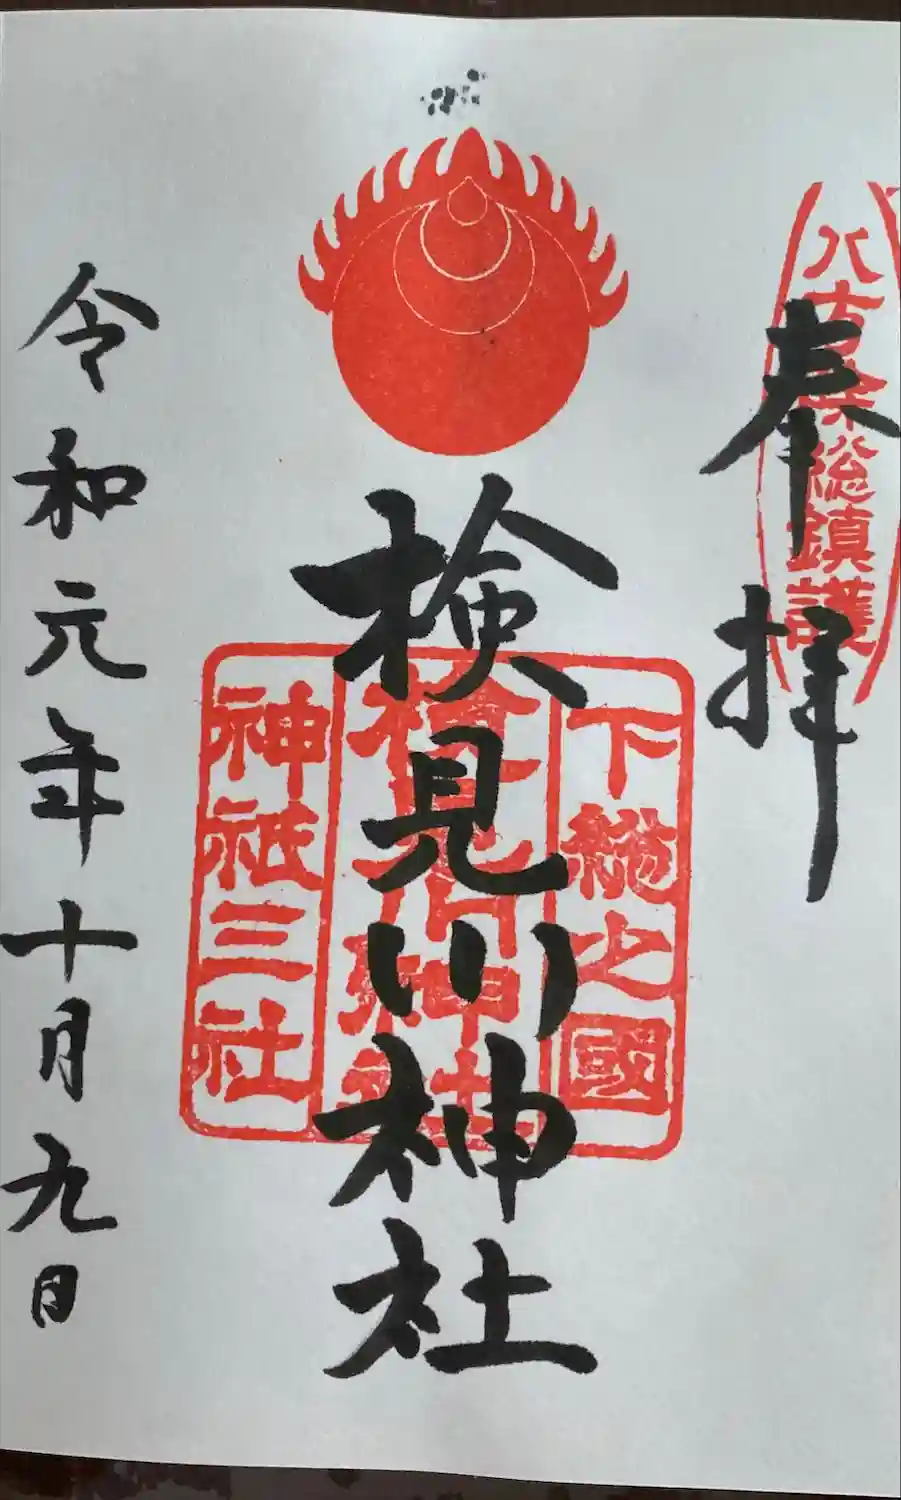 八方除総鎮護
奉拝
下総之國
検見川神社
検見川神社
神祇三社
令和元年十月九日